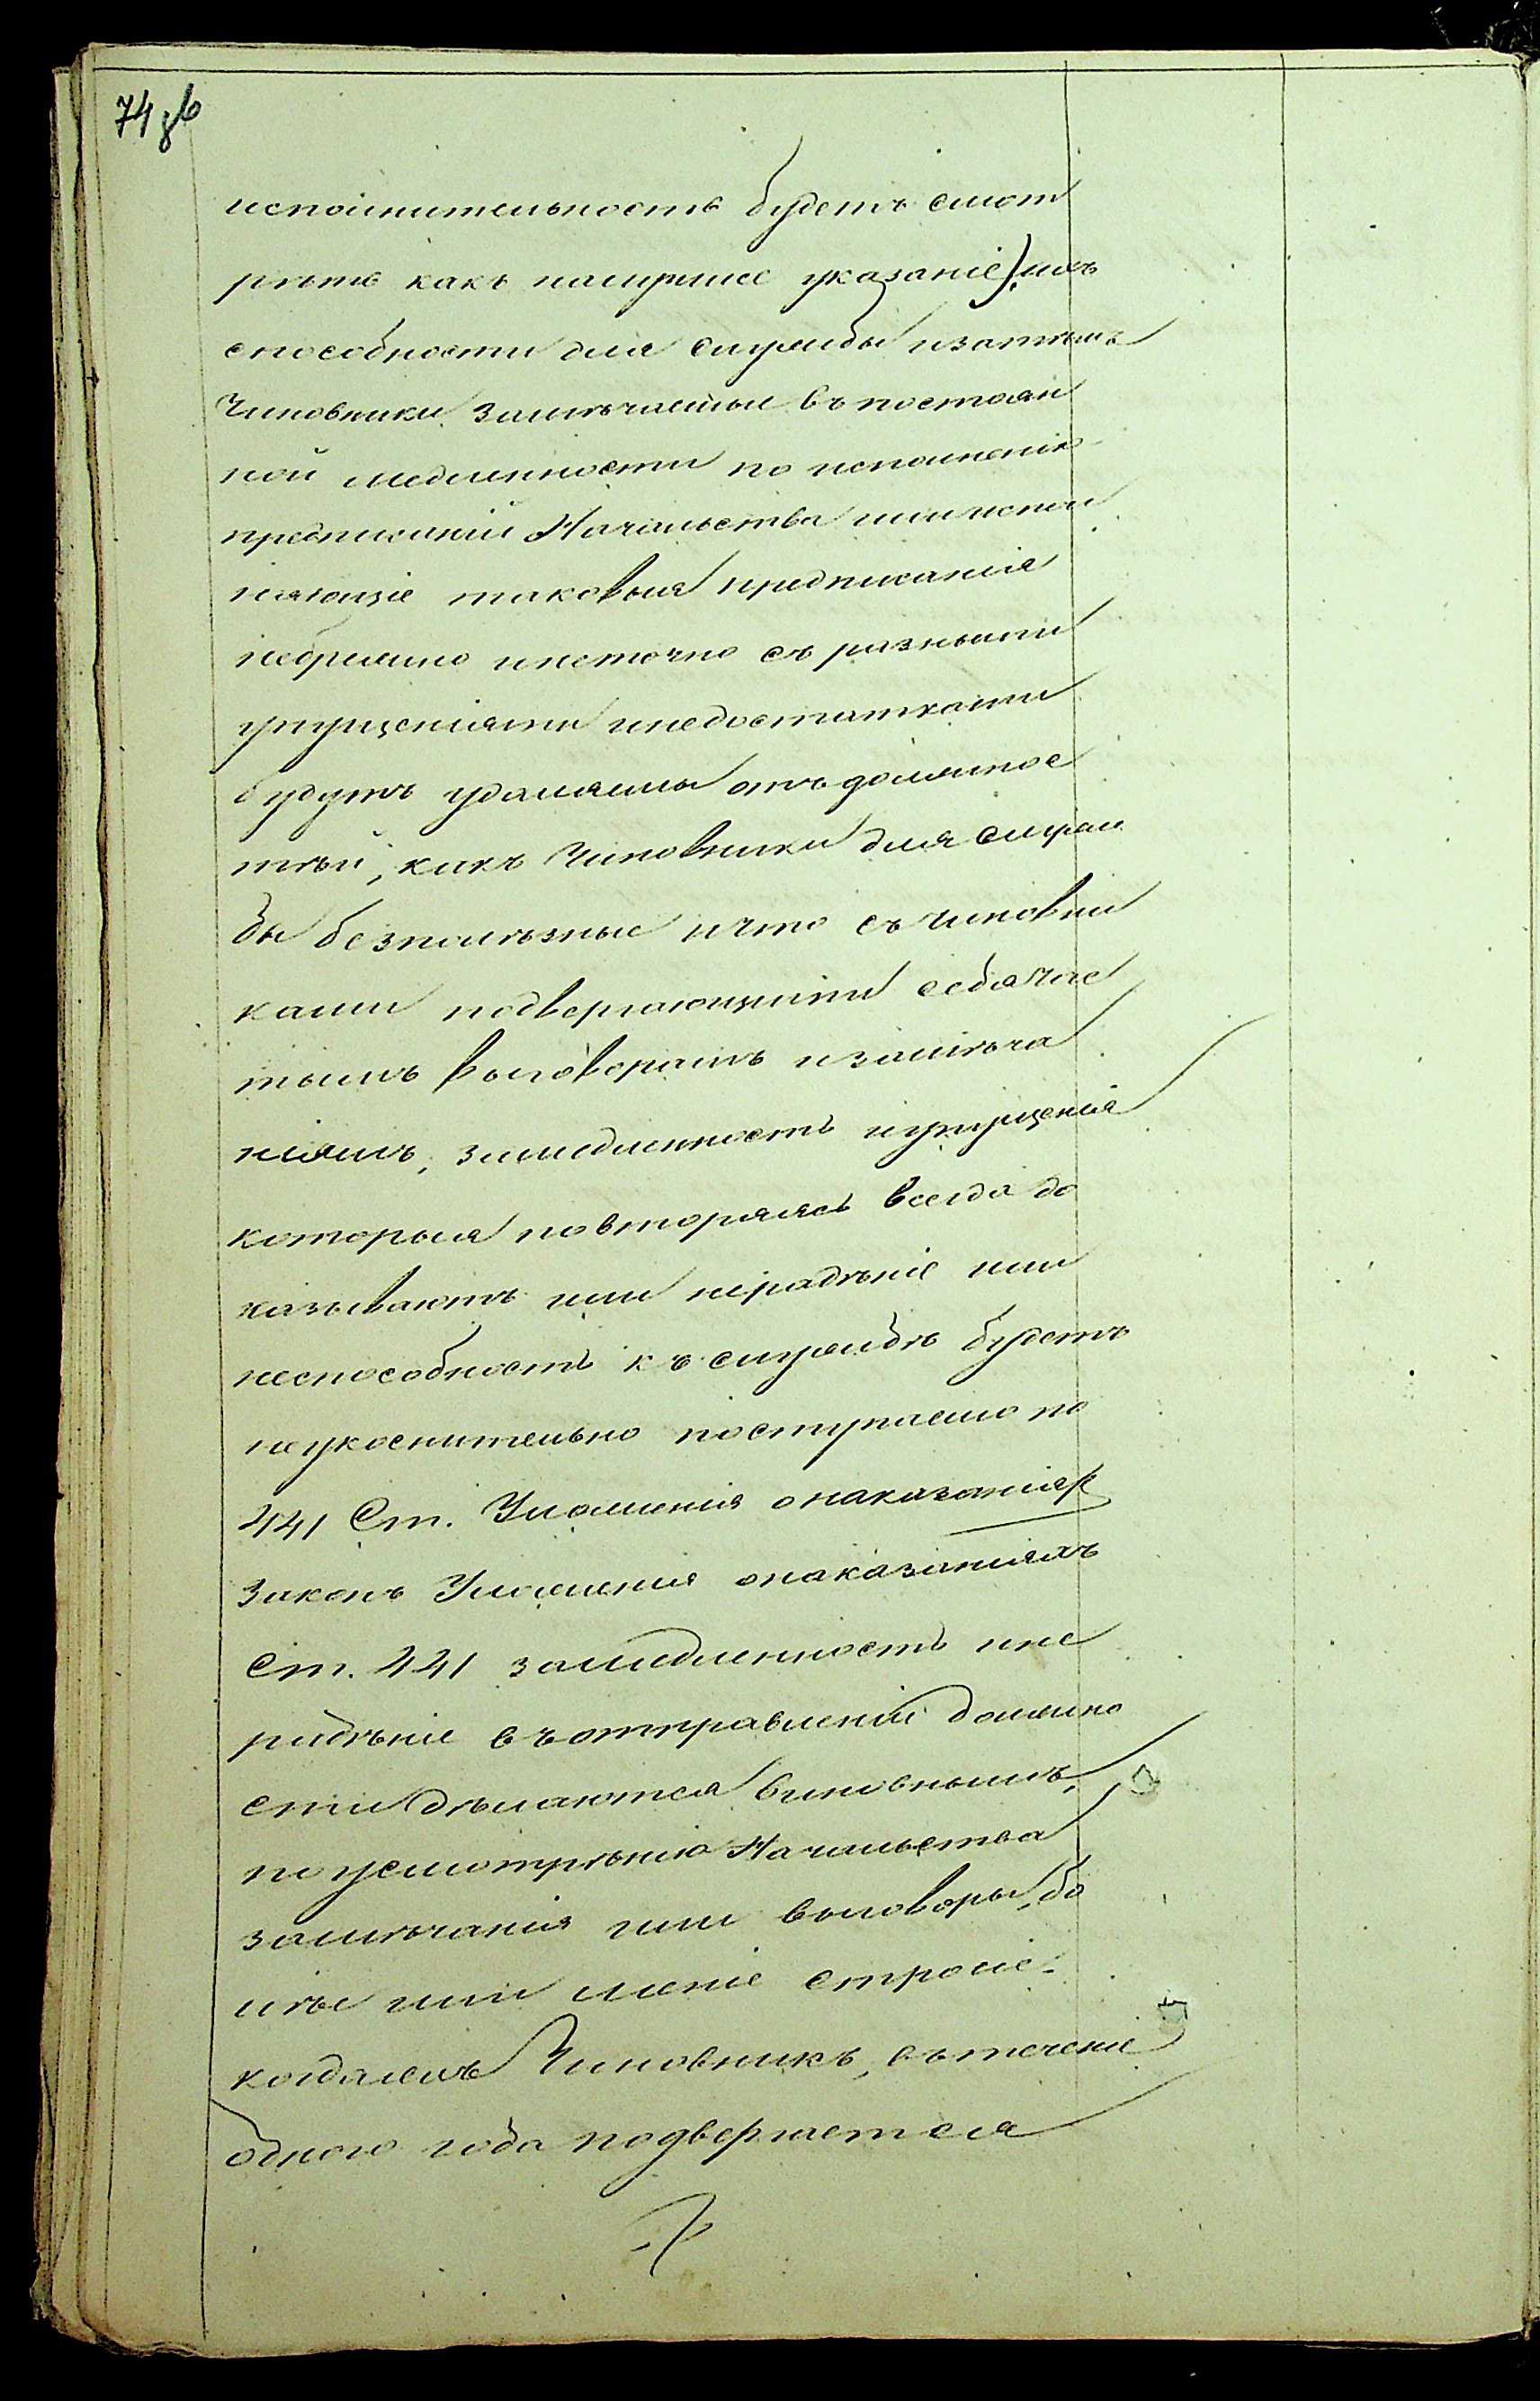 74 об
исполнительность будетъ смот
рѣть какъ налучшее указаніе) ихъ
способности для службы изатѣмъ
Чиновники замѣчаемые въ постоян
ной медленности по исполненію
предписаній Начальства или испол
няющіе таковыя предписанія
небрежно инеточно съ разными
упущеніями инедостатками
будутъ удаляемы отъ должнос
тѣй, какъ Чиновники для служ
бы безполѣзные ичто съ чиновни
ками подвергающими себя час
тымъ выговорамъ изамѣча
ніямъ, замедленность иупущенія
которыя повторяясь всегда до
казываютъ или нерадѣніе или
неспособность къ службѣ будетъ
неукоснительно поступаемо по
441 Ст. Уложенія онаказаніях
Законъ Уложенія онаказаніяхъ
Ст. 441 замедленность ине
радѣніе въ отправленіи должно
сти дѣлаются виновнымъ,
по усмотрѣнію Начальства
замѣчанія или выговоры, бо
лѣе или мение строгіе.
когдажъ Чиновникъ, въ теченіе
одного года подвергается